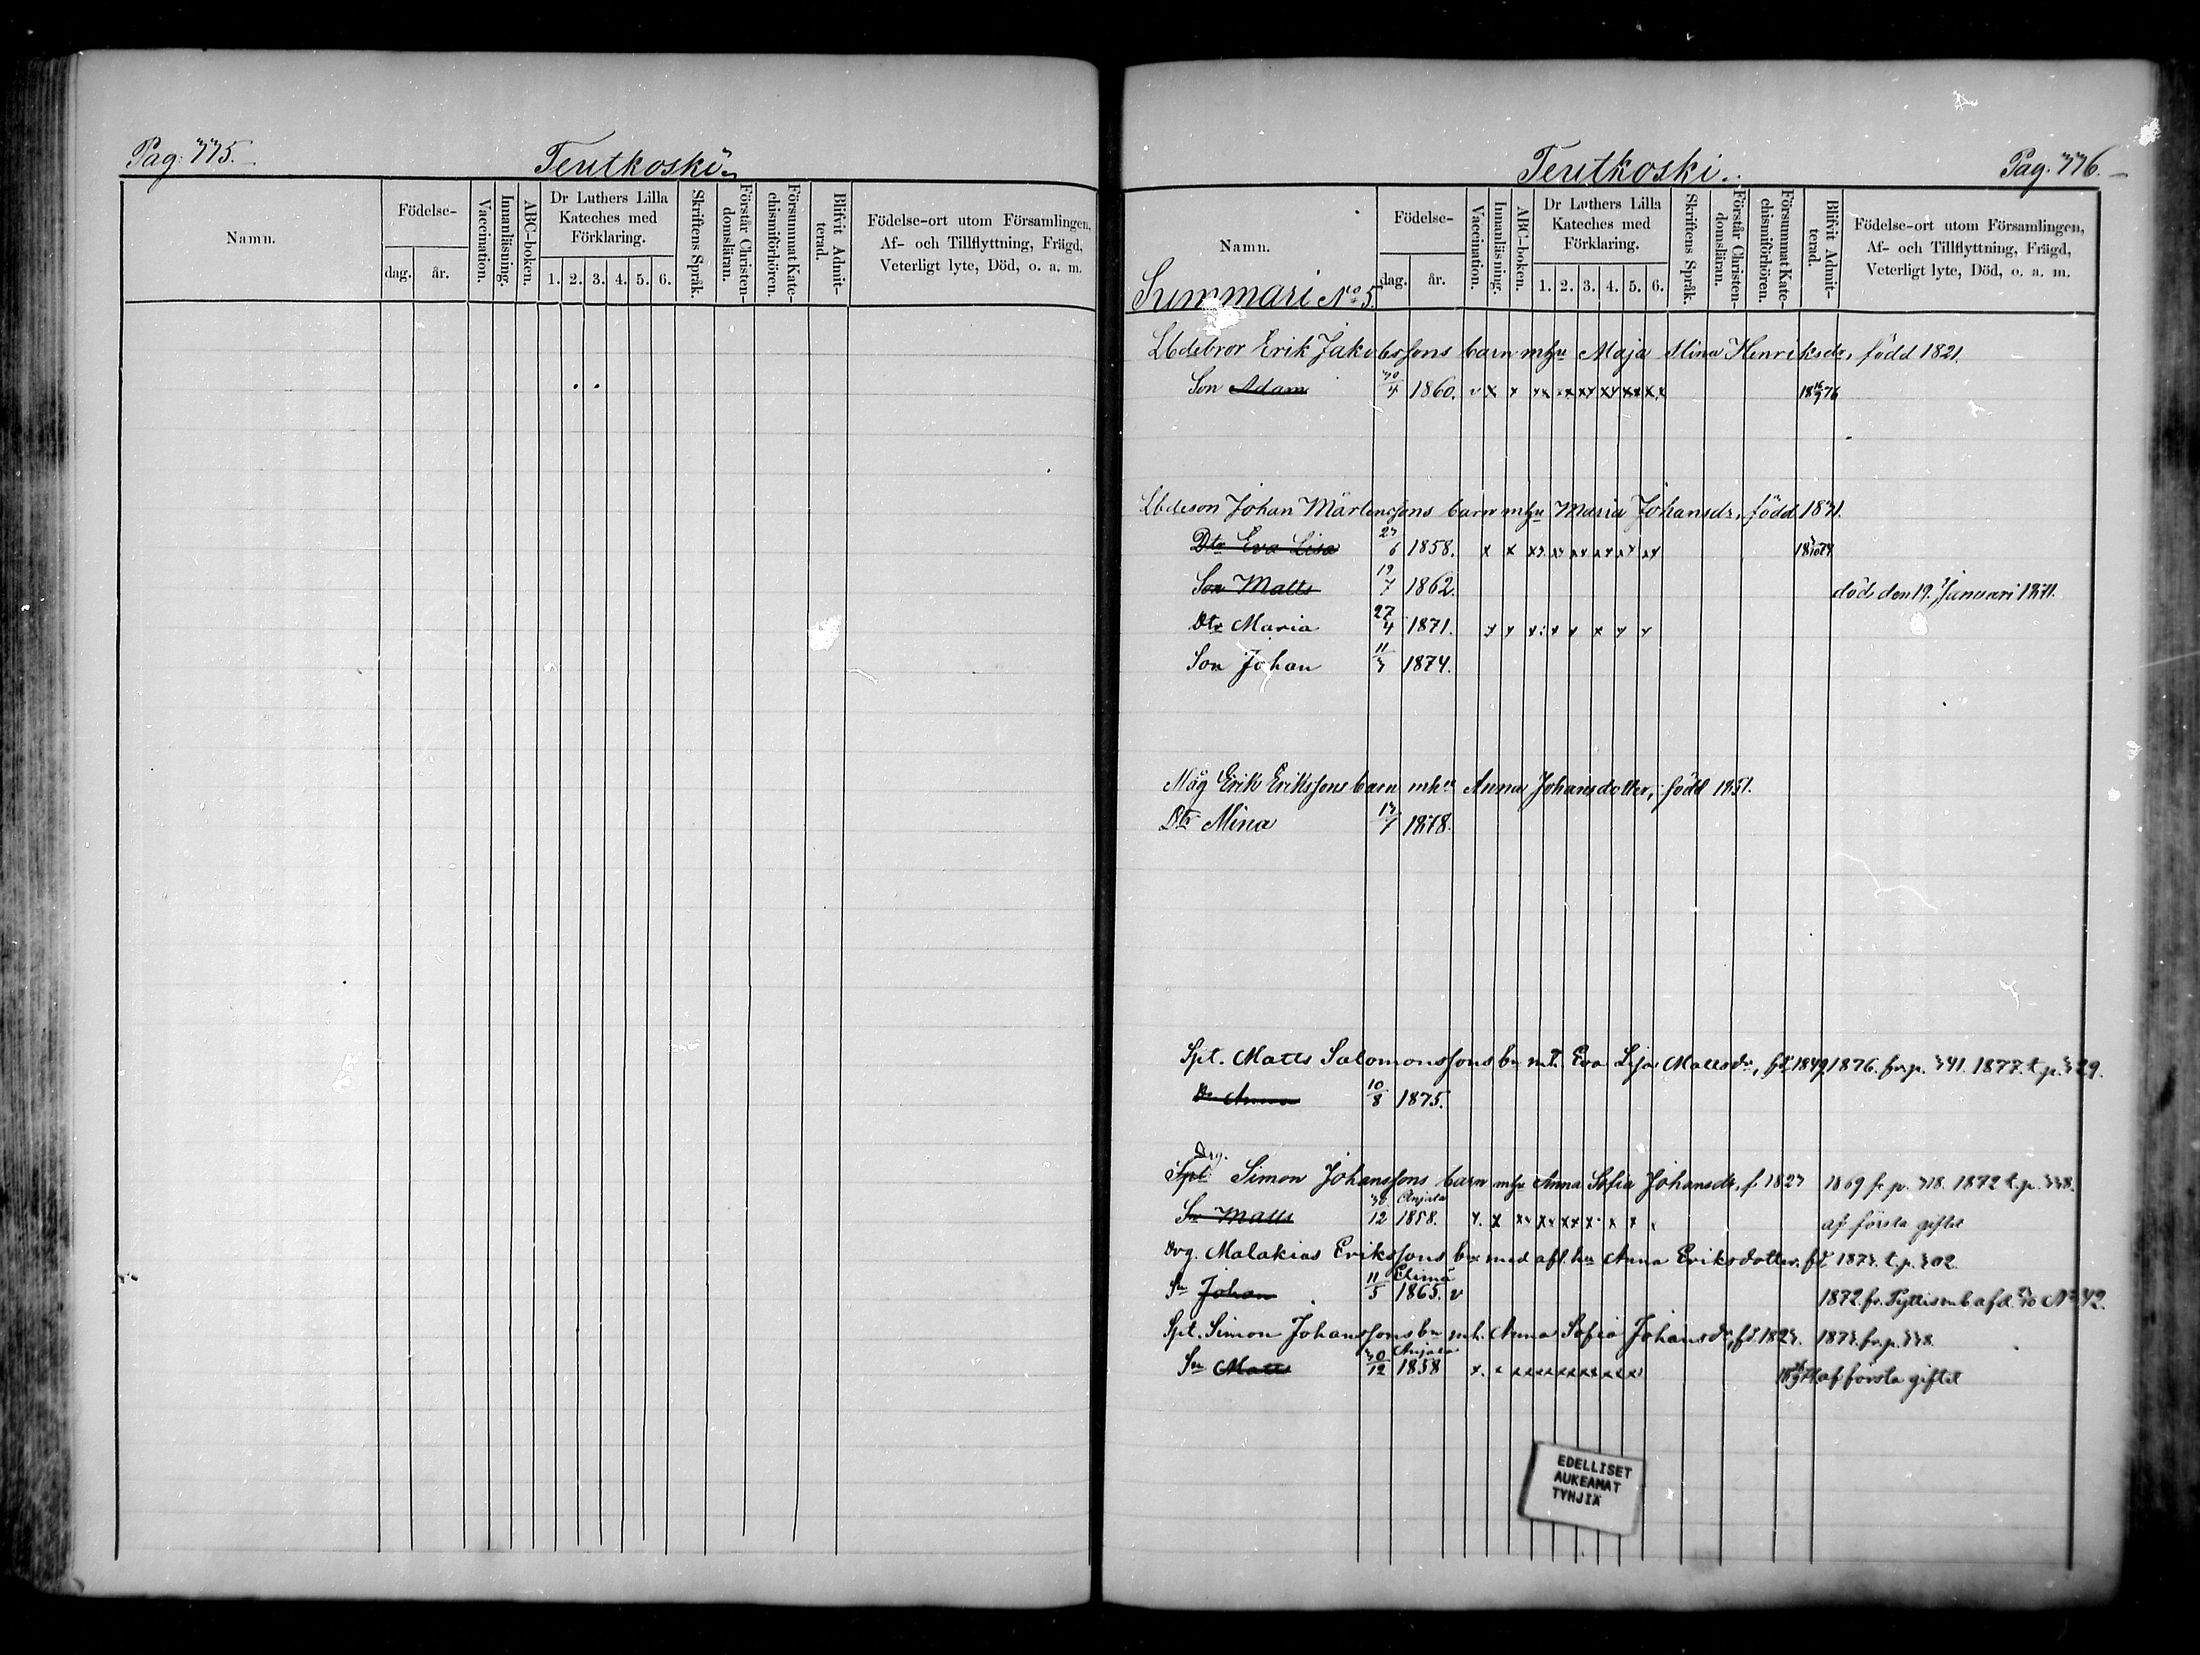 Pag. 335.
Teutkoski.
Namn.
Födelse-
dag. år.
Vaccination.
Innanläsning.
ABC-boken.
Dr Luthers Lilla
Kateches med
Förklaring.
1. 2. 3. 4. 5. 6.
Skriftens Språk.
Förstår Christen-
domsläran.
Försummat Kate-
chismiförhören.
Blifvit Admit-
terad.
Födelse-ort utom Församlingen,
Af- och Tillflyttning, Frägd,
Veterligt lyte, Död, o. a. m.
Teutkoski.
Pag. 336.
Namn.
Födelse-
dag. år.
Vaccination.
Innanläsning.
ABC-boken.
Dr Luthers Lilla
Kateches med
Förklaring.
1. 2. 3. 4. 5. 6.
Skriftens Språk.
Förstår Christen-
domsläran.
Försummat Kate-
chismiförhören.
Blifvit Admit-
terad.
Födelse-ort utom Församlingen,
Af- och Tillflyttning, Frägd,
Veterligt lyte, Död, o. a. m.
Summari No 5
Lbdebror Erik Jakobssons barn m hu Maja Stina Henriksdr, född 1821.
Son Adam 30/4 1860.
Lbdeson Johan Mårtenssons barn m hu Maria Johansdr, född 1831.
Dtr Eva Lisa 23/6 1858.
Son Matts 19/7 1862. död den 19. Januari 1871.
Dtr Maria 27/4 1871.
Son Johan 11/3 1874.
Måg Erik Erikssons barn m hu Anna Johansdotter, född 1851.
Dtr Mina 13/1 1878.
Spt. Matts Salomonssons bn m h. Eva Lisa Mattsdr, fd 1849 1876. fr. p. 341. 1877. t. p. 329.
Dr Anna 10/8 1875.
Drg.
Spt Simon Johanssons barn m hu Anna Sofia Johansdr, f. 1823 1869 fr. p. 318. 1872 t. p. 338.
Sn Matts 30/12 Anjala 1858. af första giftet
Drg. Malakias Erikssons bn med afl. hu Anna Eriksdotter. fd 1873. t. p. 302.
Sn Johan 11/5 Elimä 1865. v 1872. fr. Pyttis mb afd. No 42.
Spt. Simon Johanssons bn m h. Anna Sofia Johansdr, fd. 1823. 1873. fr. p. 338.
Sn Matts 30/12 Anjala 1858 af första giftet
EDELLISET
AUKEAMAT
TYHJIÄ